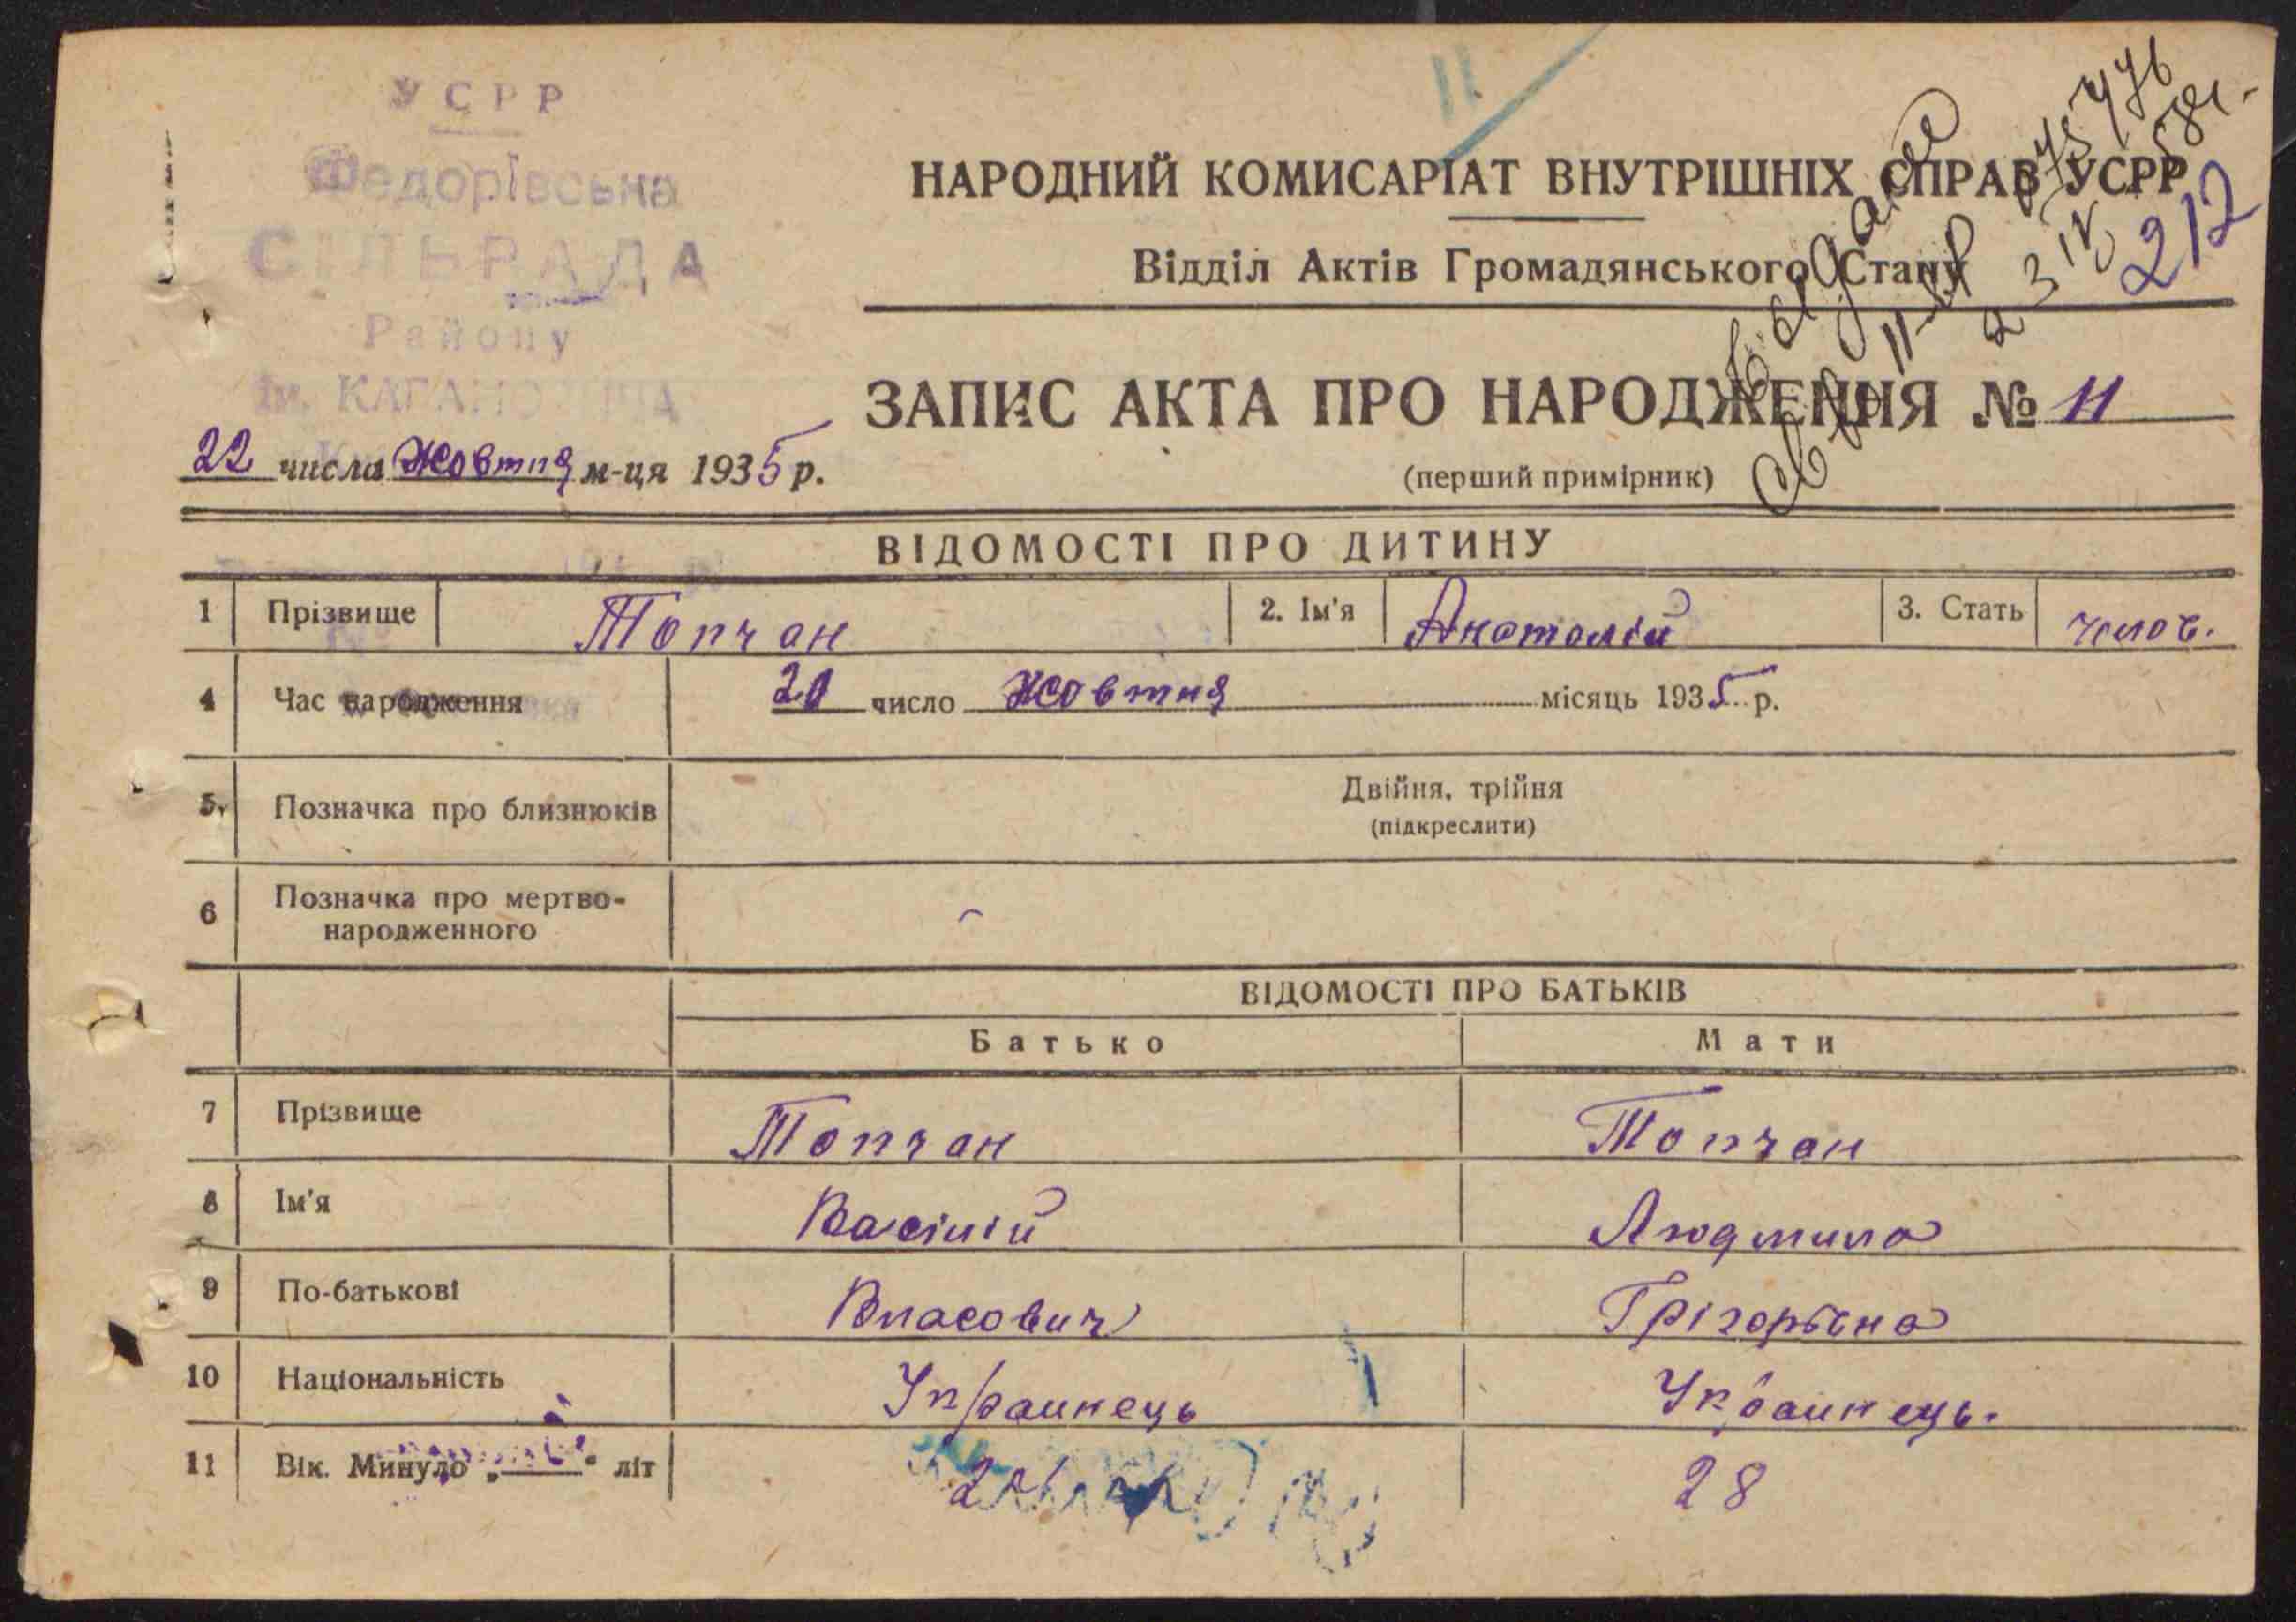 УСРР
Федорівська
СІЛЬРАДА
Району
ім. КАГАНОВИЧА
11
НАРОДНИЙ КОМИСАРІАТ ВНУТРІШНІХ СПРАВ УСРР
212
Відділ Актів Громадянського Стану
ЗАПИС АКТА ПРО НАРОДЖЕННЯ № 11
22 числа Жовтня м-ця 1935 р.
(перший примірник)
ВІДОМОСТІ ПРО ДИТИНУ
1 Прізвище Топчан 2. Ім'я Анатолій 3. Стать чолов.
4 Час народження число Жовтня місяць 1935 р.
5. Позначка про близнюків Двійня, трійня
(підкреслити)
6 Позначка про мертво-
народженного
ВІДОМОСТІ ПРО БАТЬКІВ
Батько Мати
7 Прізвище Топчан Топчан
8 Ім'я Васілій Людмила
9 По-батькові Власович Грігорьєна
10 Національність Украинець Украинець.
11 Вік. Минуло „ “ літ 28